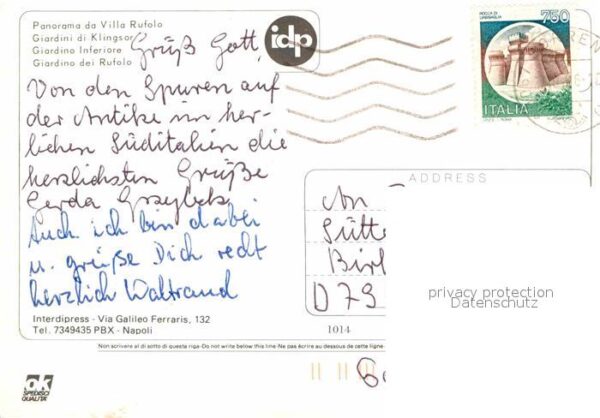 Panorama da Villa Rufolo
Giardini di Klingsor
Giardino Inferiore
Giardino dei Rufolo
idp
ROCCA DI URBISAGLIA
750
ITALIA
Grüß Gott,
Von den Spuren auf
der Antike im her-
lichen Süditalien die
herzlichsten Grüße
Gerda
Auch ich bin dabei
u. grüße Dich recht
herzlich Waltraud
ADDRESS
An
Sütte
Birk
D 79
privacy protection
Datenschutz
Interdipress - Via Galileo Ferraris, 132
Tel. 7349435 PBX - Napoli
1014
Non scrivere al di sotto di questa riga-Do not write below this line-Ne pas écrire au dessous de cette ligne
ok
SPEDISCI
QUALITÀ